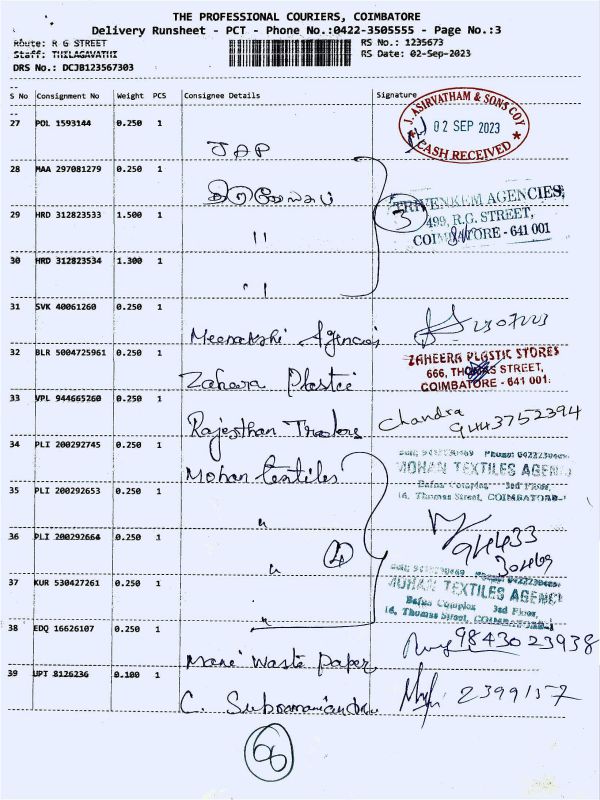 THE PROFESSIONAL COURIERS, COIMBATORE
Delivery Runsheet - PCT - Phone No.:0422-3505555 - Page No.:3
Route: R G STREET
RS No.: 1235673
Staff: THILAGAVATHI
RS Date: 02-Sep-2023
DRS No.: DCJB123567303
S No Consignment No Weight PCS Consignee Details Signature
J. ASIRVATHAM & SONS COY
02 SEP 2023
CASH RECEIVED
27 POL 1593144 0.250 1
JAP
28 MAA 297081279 0.250 1
TRIVENKEM AGENCIES,
499, R.G. STREET,
COIMBATORE - 641 001
3
29 HRD 312823533 1.500 1
"
30 HRD 312823534 1.300 1
"
31 SVK 40061260 0.250 1
Meenakshi Agencies
32 BLR 5004725961 0.250 1
ZAHEERA PLASTIC STORES
666, THOMAS STREET,
COIMBATORE - 641 001.
Zahara Plastic
33 VPL 944665260 0.250 1
Chandra
9443752394
Rajesthan Traders
34 PLI 200292745 0.250 1
Mohan textiles
MOHAN TEXTILES AGENC
Bafna Complex 3rd Floor,
16, Thomas Street, COIMBATORE-1
35 PLI 200292653 0.250 1
"
36 PLI 200292664 0.250 1
"
4
94433
30469
37 KUR 530427261 0.250 1
MOHAN TEXTILES AGENC
Bafna Complex 3rd Floor,
16, Thomas Street, COIMBATORE-1
"
38 EDQ 16626107 0.250 1
9843023938
Mani Waste Paper
39 UPT 8126236 0.100 1
2399157
C. Subramaniandra
66